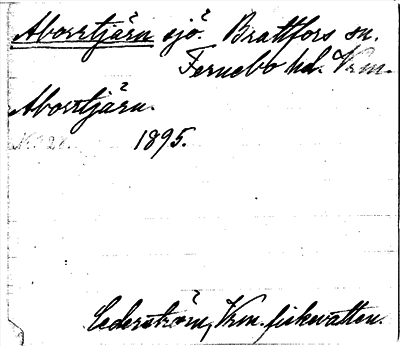 Aborrtjärn sjö. Brattfors sn.
Fernebo hd. Vrm.
Aborrtjärn.
1895.
Cederström, Vrm. fiskevatten.